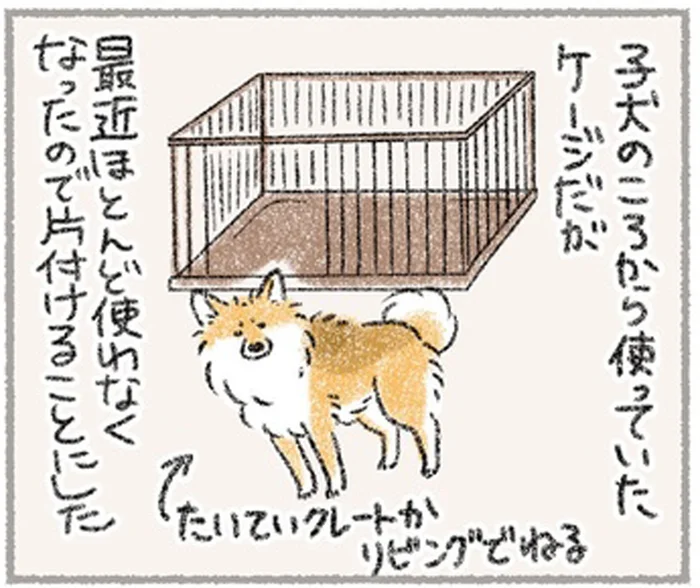 子犬のころから使っていた
ケージだが
最近ほとんど使わなく
なったので片付けることにした
たいていクレートか
リビングでねる